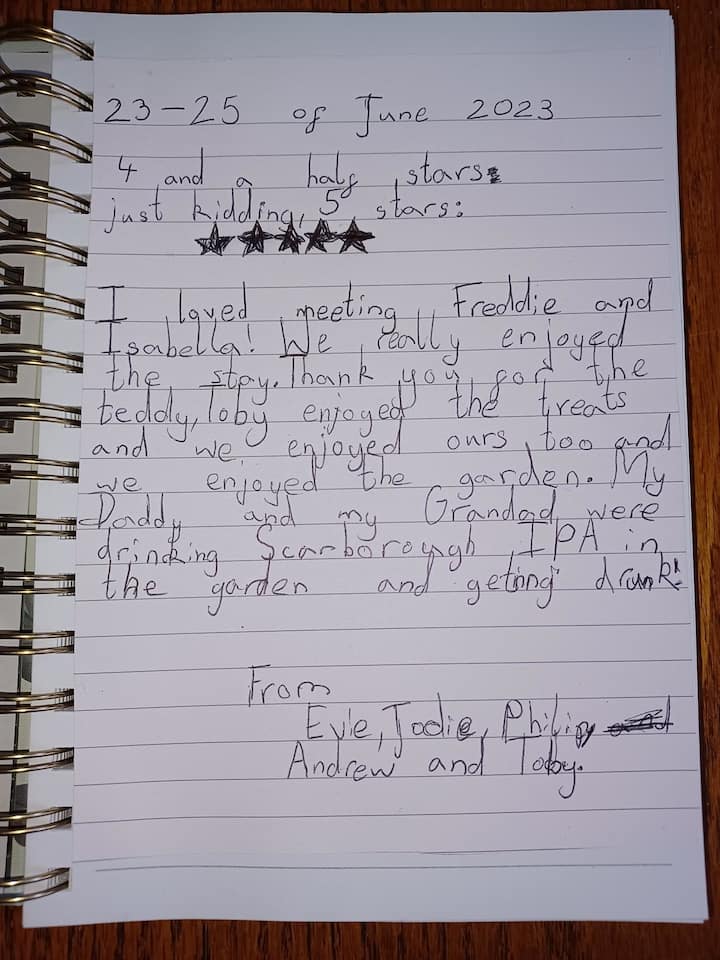 23-25 of June 2023
4 and a half stars:
just kidding, 5 stars:
★★★★★
I loved meeting Freddie and
Isabella! We really enjoyed
the stay. Thank you for the
teddy, Toby enjoyed the treats
and we enjoyed ours too and
we enjoyed the garden. My
Daddy and my Grandad were
drinking Scarborough IPA in
the garden and geting drunk!
From
Evie, Jodie, Philip
Andrew and Toby.